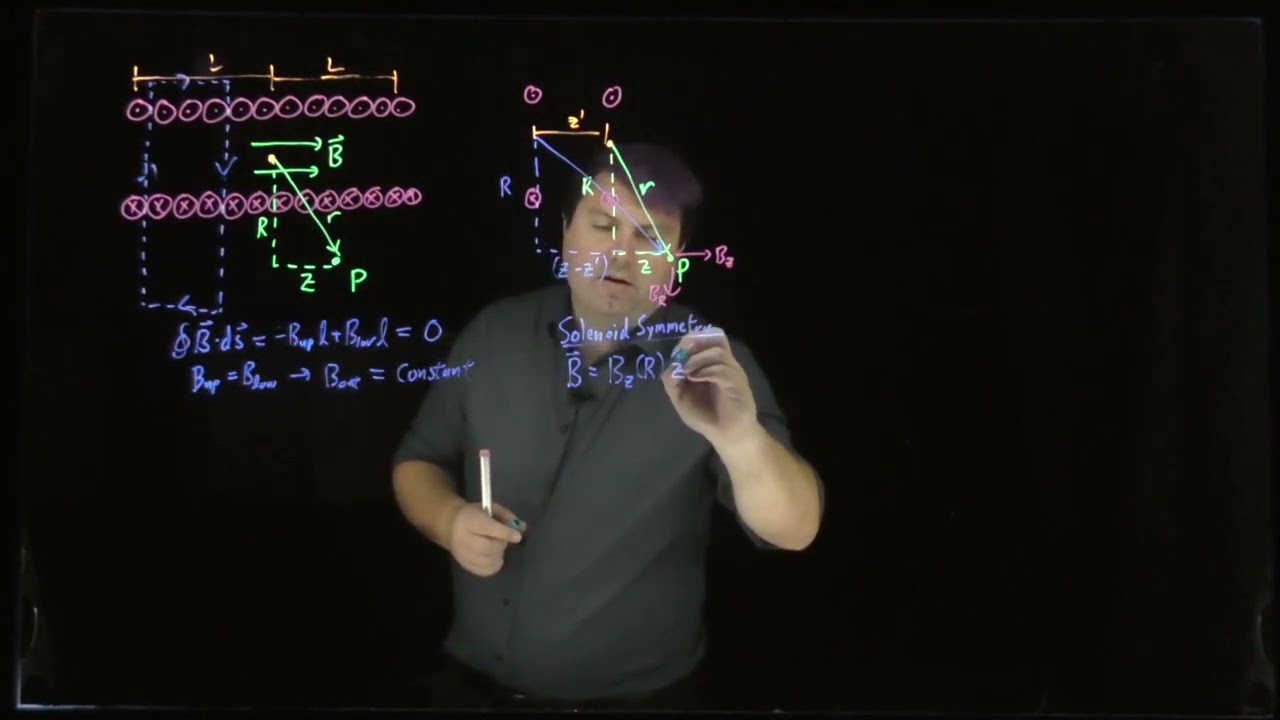 L L
B⃗
R r
z P
∮ B⃗·ds⃗ = -B_up l + B_low l = 0
B_up = B_low → B_out = Constant
z'
R R r
(z-z') z P B_z
B_R
Solenoid Symmetry
B⃗ = B_z(R) z